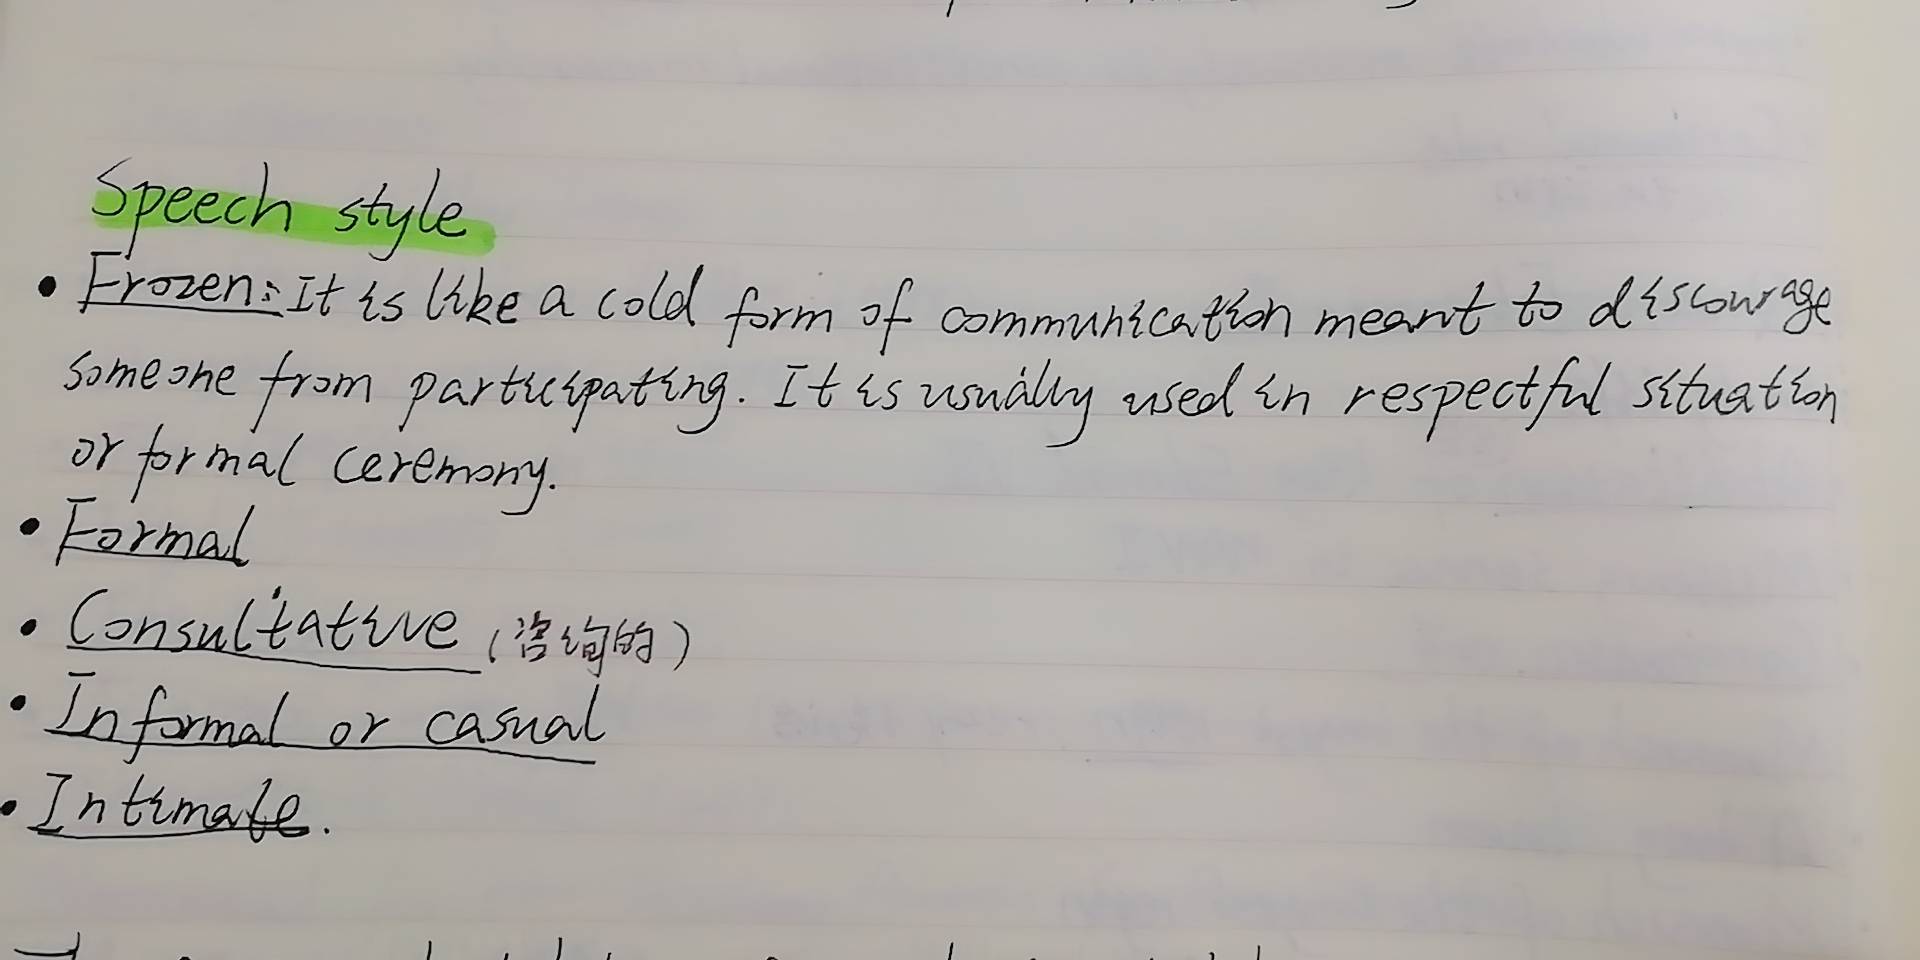 Speech style
• Frozen: It is like a cold form of communication meant to discourage
someone from participating. It is usually used in respectful situation
or formal ceremony.
• Formal
• Consultative (咨询的)
• Informal or casual
• Intimate.